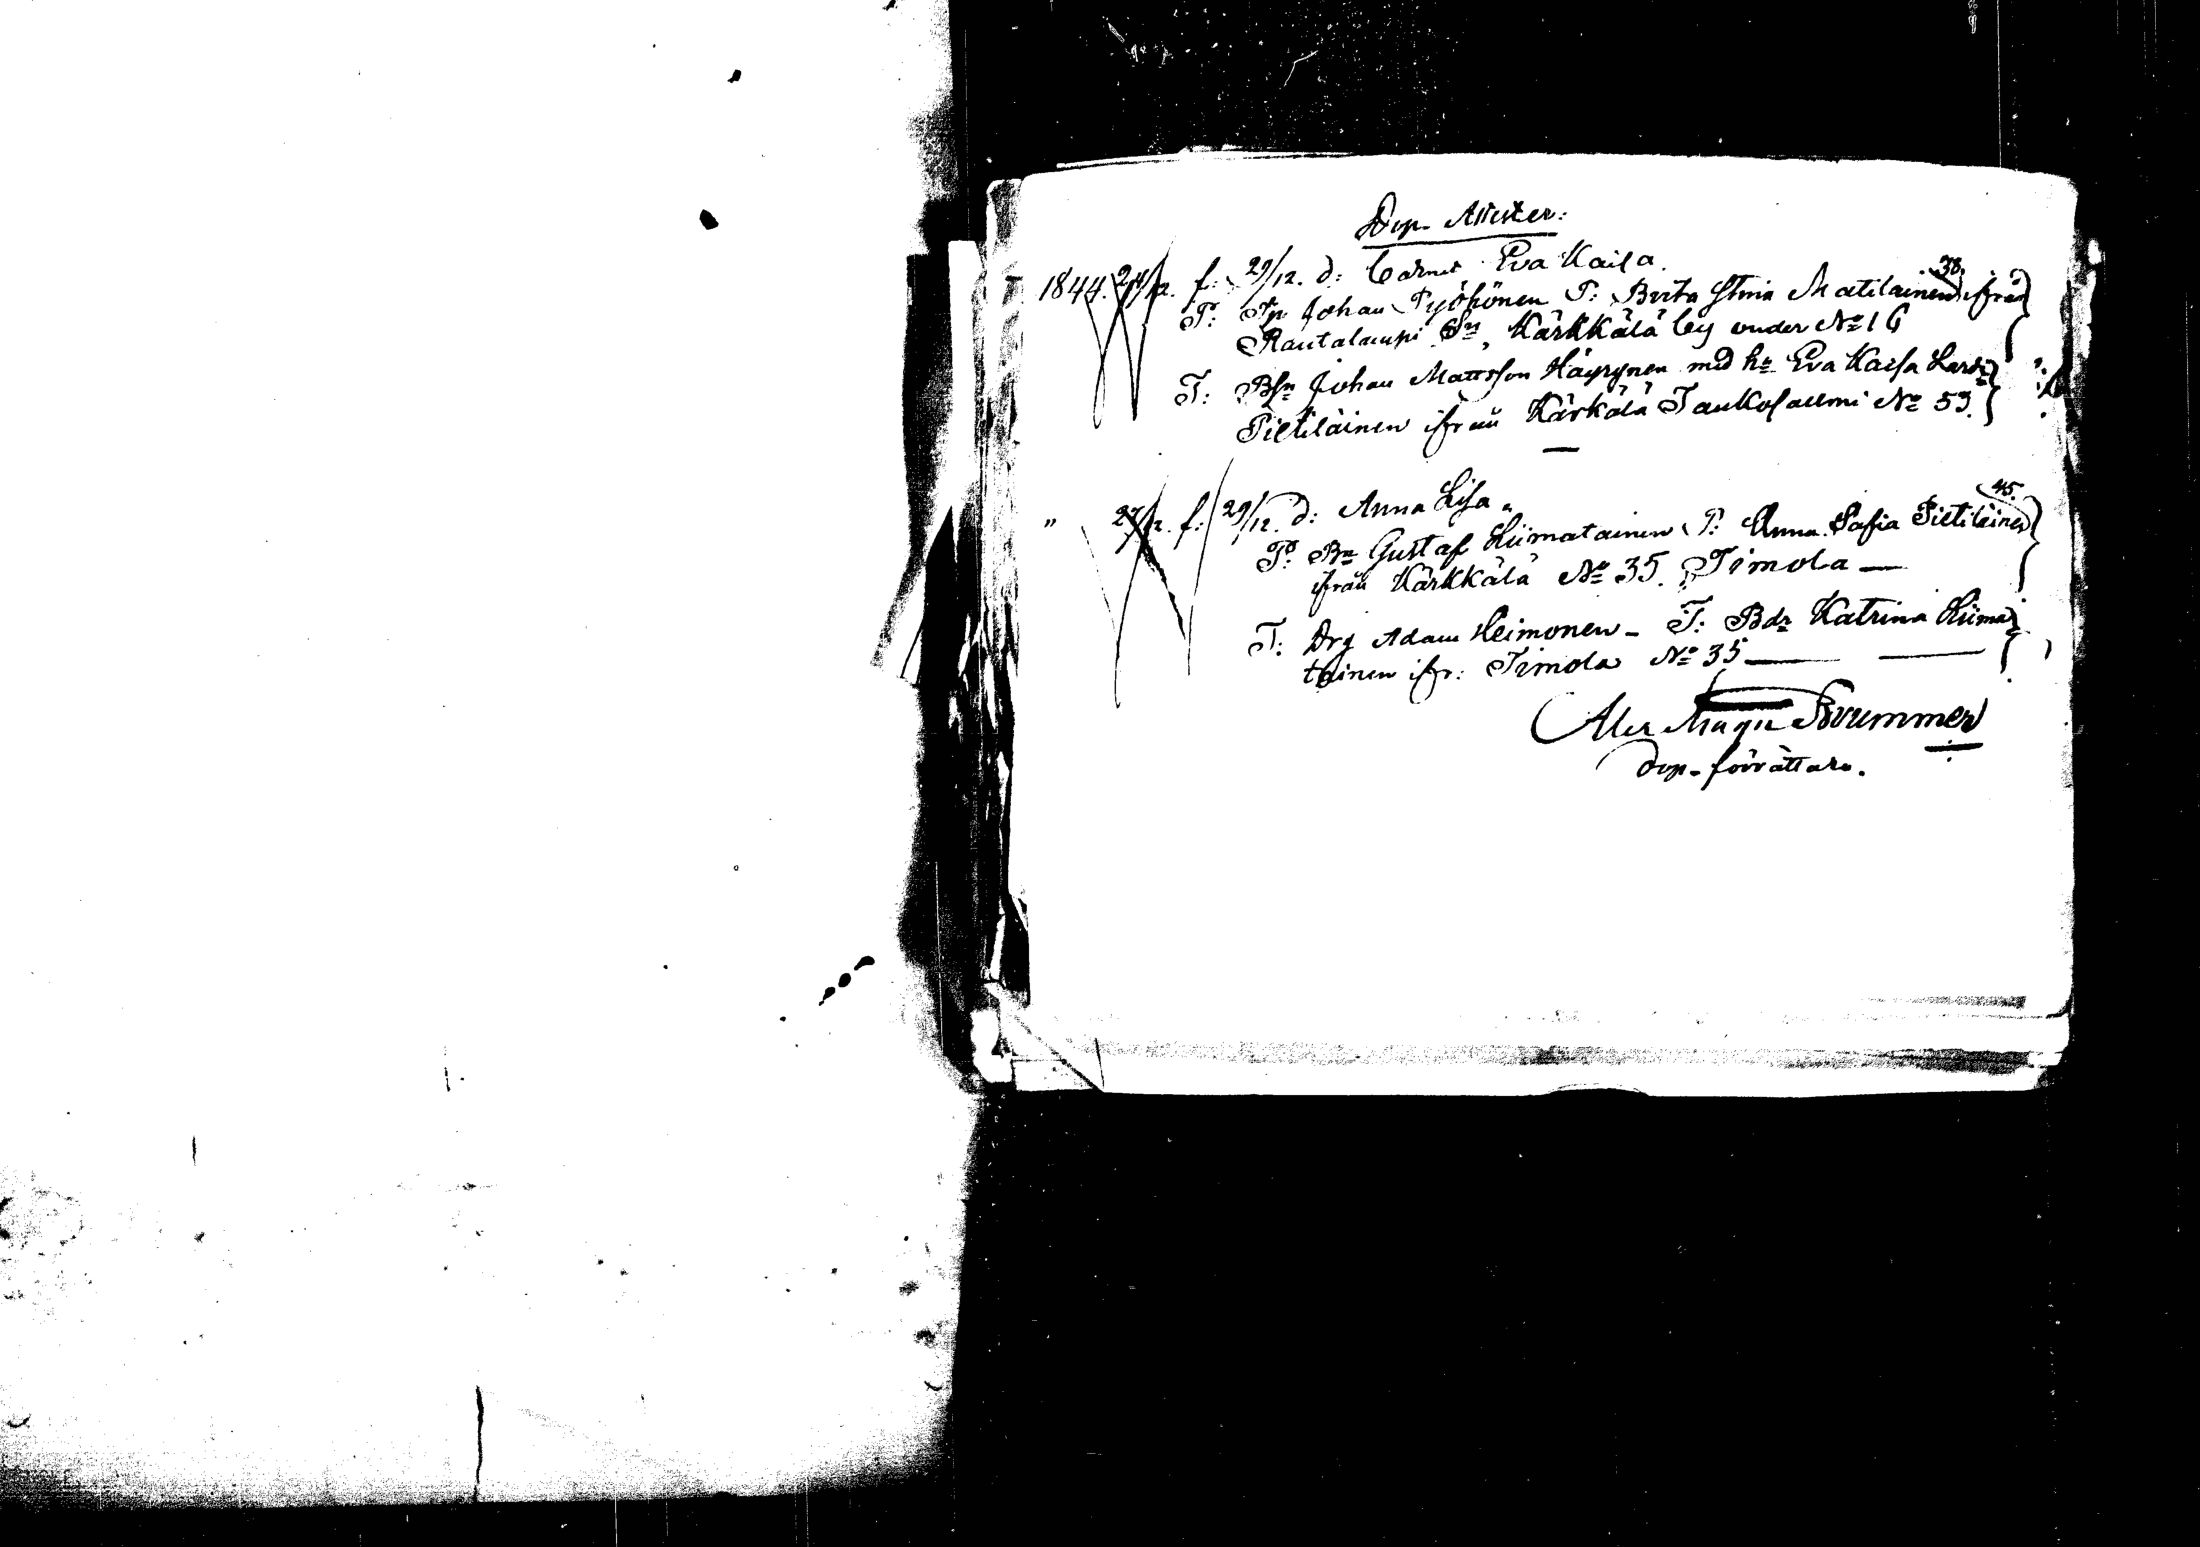 Dop-Attester:
1844. 24/12. f: 29/12. d: barnet Eva Kaisa.
P: Tp Johan Pyöhönen P: Brita Stina Matilainen 38. ifrån
Rautalampi Sn, Kärkkälä by under No 16
T: Bsn Johan Mattsson Häyrynen med h. Eva Kaisa Larsdr
Pietiläinen ifrån Kärkälä Taukosalmi No 53.
" 27/12. f: 29/12. d: Anna Lisa.
P: Bn Gustaf Liimatainen P: Anna Sofia Pietiläinen 45.
ifrån Kärkkälä No 35. Timola —
T: Drg Adam Heimonen - T: Bdr Katrina Liima-
tainen ifr: Timola No 35 — —
Alex Magn Brummer
dop-förrättare.